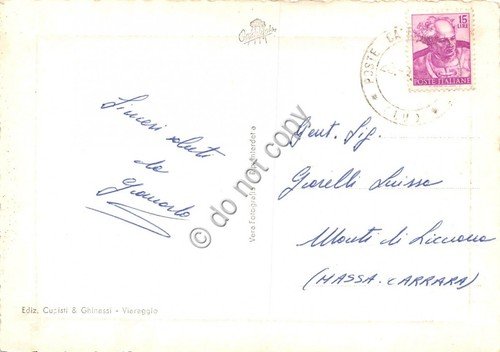 15
LIRE
POSTE ITALIANE
POSTE
(LU)
Sinceri saluti
da
Gent. Sig.
Giorelli Luisa
Monti di Licciana
(MASSA-CARRARA)
Vera Fotografia
Interdetta
© do not copy
Ediz. Capisti & Ghinassi - Viareggio